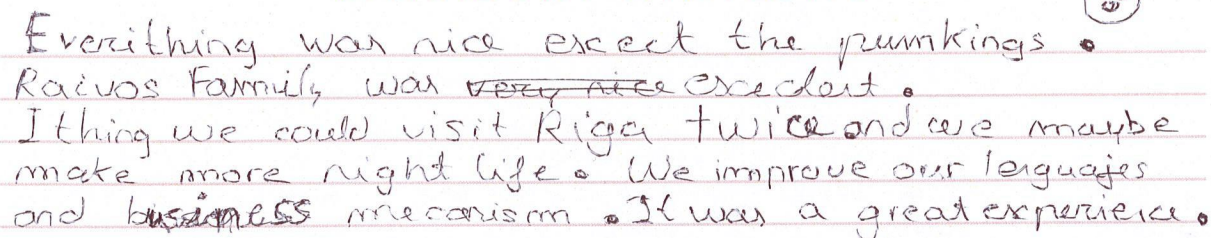 Everithing was nice excect the pumkings.
Raivos Family was very nice excedent.
I thing we could visit Riga twice and we maybe
make more night life. We improve our lenguajes
and business mecanism. It was a great experience.